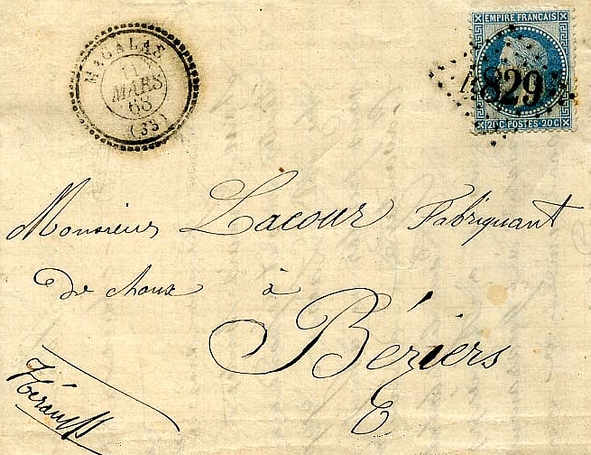 MAGALAS
11
MARS
68
(33)
EMPIRE FRANÇAIS
829
20C POSTES 20C
Monsieur Lacour Fabriquant
de chaux à
Béziers
Hérault